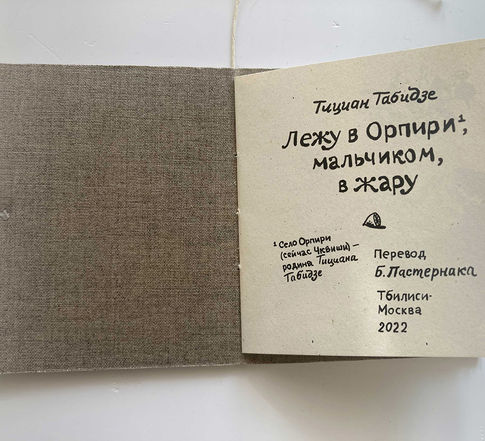 Тициан Табидзе
Лежу в Орпири¹,
мальчиком,
в жару
¹ Село Орпири
(сейчас Чквиши) –
родина Тициана
Табидзе
Перевод
Б. Пастернака
Тбилиси-
Москва
2022